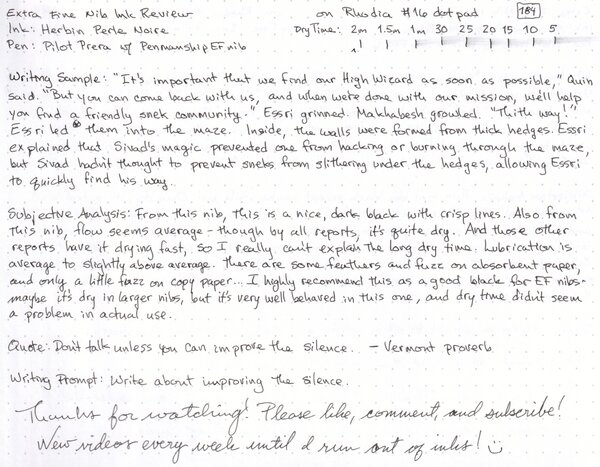 Extra Fine Nib Ink Review on Rhodia #16 dotpad 184
Ink: Herbin Perle Noire Dry Time: 2m 1.5m 1m 30 25 20 15 10 5
Pen: Pilot Prera w/ Penmanship EF nib
Writing Sample: "It's important that we find our High Wizard as soon as possible," Quin
said. "But you can come back with us, and when we're done with our mission, we'll help
you find a friendly snek community." Essri grinned. Makhabesh growled. "Thith way!"
Essri led them into the maze. Inside, the walls were formed from thick hedges. Essri
explained that Sivad's magic prevented one from hacking or burning through the maze,
but Sivad hadn't thought to prevent sneks from slithering under the hedges, allowing Essri
to quickly find his way.
Subjective Analysis: From this nib, this is a nice, dark black with crisp lines. Also from
this nib, flow seems average - though by all reports, it's quite dry. And those other
reports have it drying fast, so I really can't explain the long dry time. Lubrication is
average to slightly above average. There are some feathers and fuzz on absorbent paper,
and only a little fuzz on copy paper... I highly recommend this as a good black for EF nibs-
maybe it's dry in larger nibs, but it's very well behaved in this one, and dry time didn't seem
a problem in actual use.
Quote: Don't talk unless you can improve the silence. - Vermont proverb
Writing Prompt: Write about improving the silence.
Thanks for watching! Please like, comment, and subscribe!
New videos every week until I run out of inks!